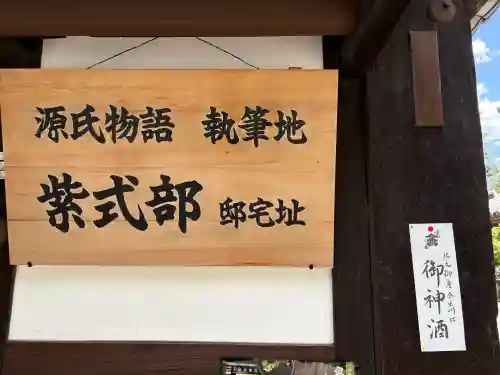 源氏物語 執筆地
紫式部 邸宅址
御神酒